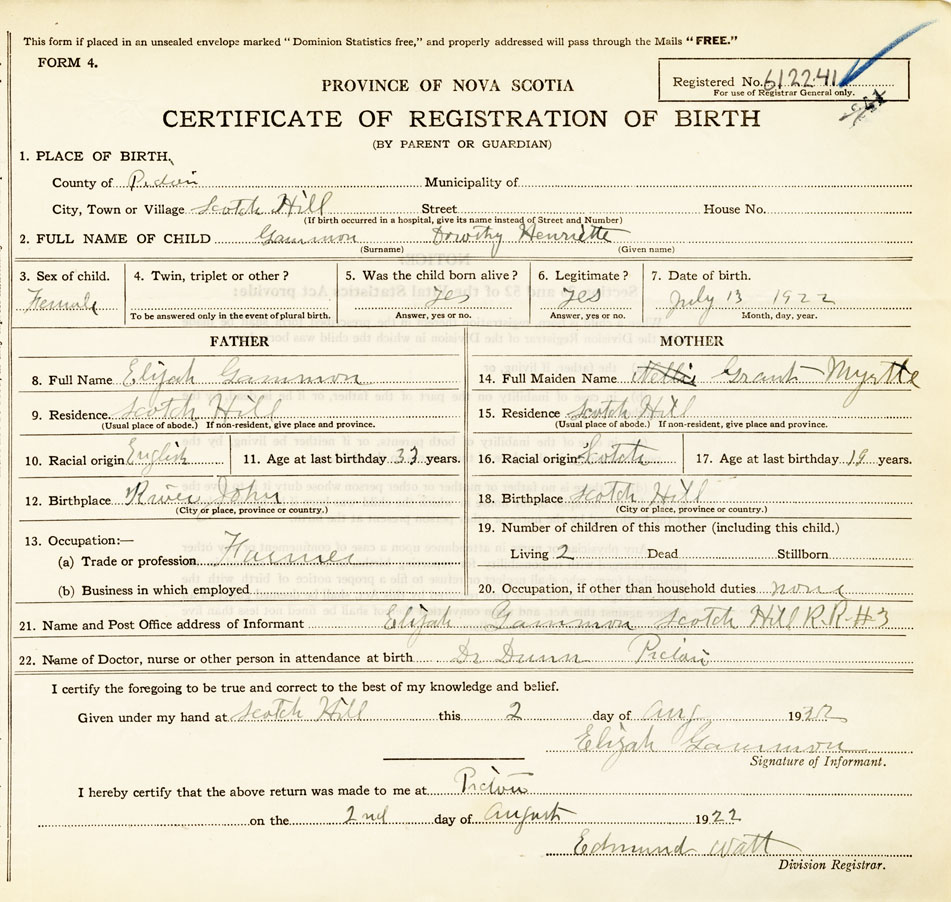 This form if placed in an unsealed envelope marked "Dominion Statistics free," and properly addressed will pass through the Mails "FREE."
FORM 4.
Registered No. 612241
For use of Registrar General only.
PROVINCE OF NOVA SCOTIA
CERTIFICATE OF REGISTRATION OF BIRTH
(BY PARENT OR GUARDIAN)
1. PLACE OF BIRTH
County of Pictou Municipality of
City, Town or Village Scotch Hill Street House No.
(If birth occurred in a hospital, give its name instead of Street and Number)
2. FULL NAME OF CHILD Gammon Dorothy Henriette
(Surname) (Given name)
3. Sex of child. 4. Twin, triplet or other? 5. Was the child born alive? 6. Legitimate? 7. Date of birth.
Female yes yes July 13 1922
To be answered only in the event of plural birth. Answer, yes or no. Answer, yes or no. Month, day, year.
FATHER MOTHER
8. Full Name Elijah Gammon 14. Full Maiden Name Nellie Grant Myrtle
9. Residence Scotch Hill 15. Residence Scotch Hill
(Usual place of abode.) If non-resident, give place and province. (Usual place of abode.) If non-resident, give place and province.
10. Racial origin English 11. Age at last birthday 33 years. 16. Racial origin Scotch 17. Age at last birthday 19 years.
12. Birthplace River John 18. Birthplace Scotch Hill
(City or place, province or country.) (City or place, province or country.)
13. Occupation:— 19. Number of children of this mother (including this child.)
(a) Trade or profession Farmer Living 2 Dead Stillborn
(b) Business in which employed 20. Occupation, if other than household duties none
21. Name and Post Office address of Informant Elijah Gammon Scotch Hill R.R #3
22. Name of Doctor, nurse or other person in attendance at birth Dr Dunn Pictou
I certify the foregoing to be true and correct to the best of my knowledge and belief.
Given under my hand at Scotch Hill this 2 day of Aug 1922
Elijah Gammon
Signature of Informant.
I hereby certify that the above return was made to me at Pictou
on the 2nd day of August 1922
Edmund Watt
Division Registrar.